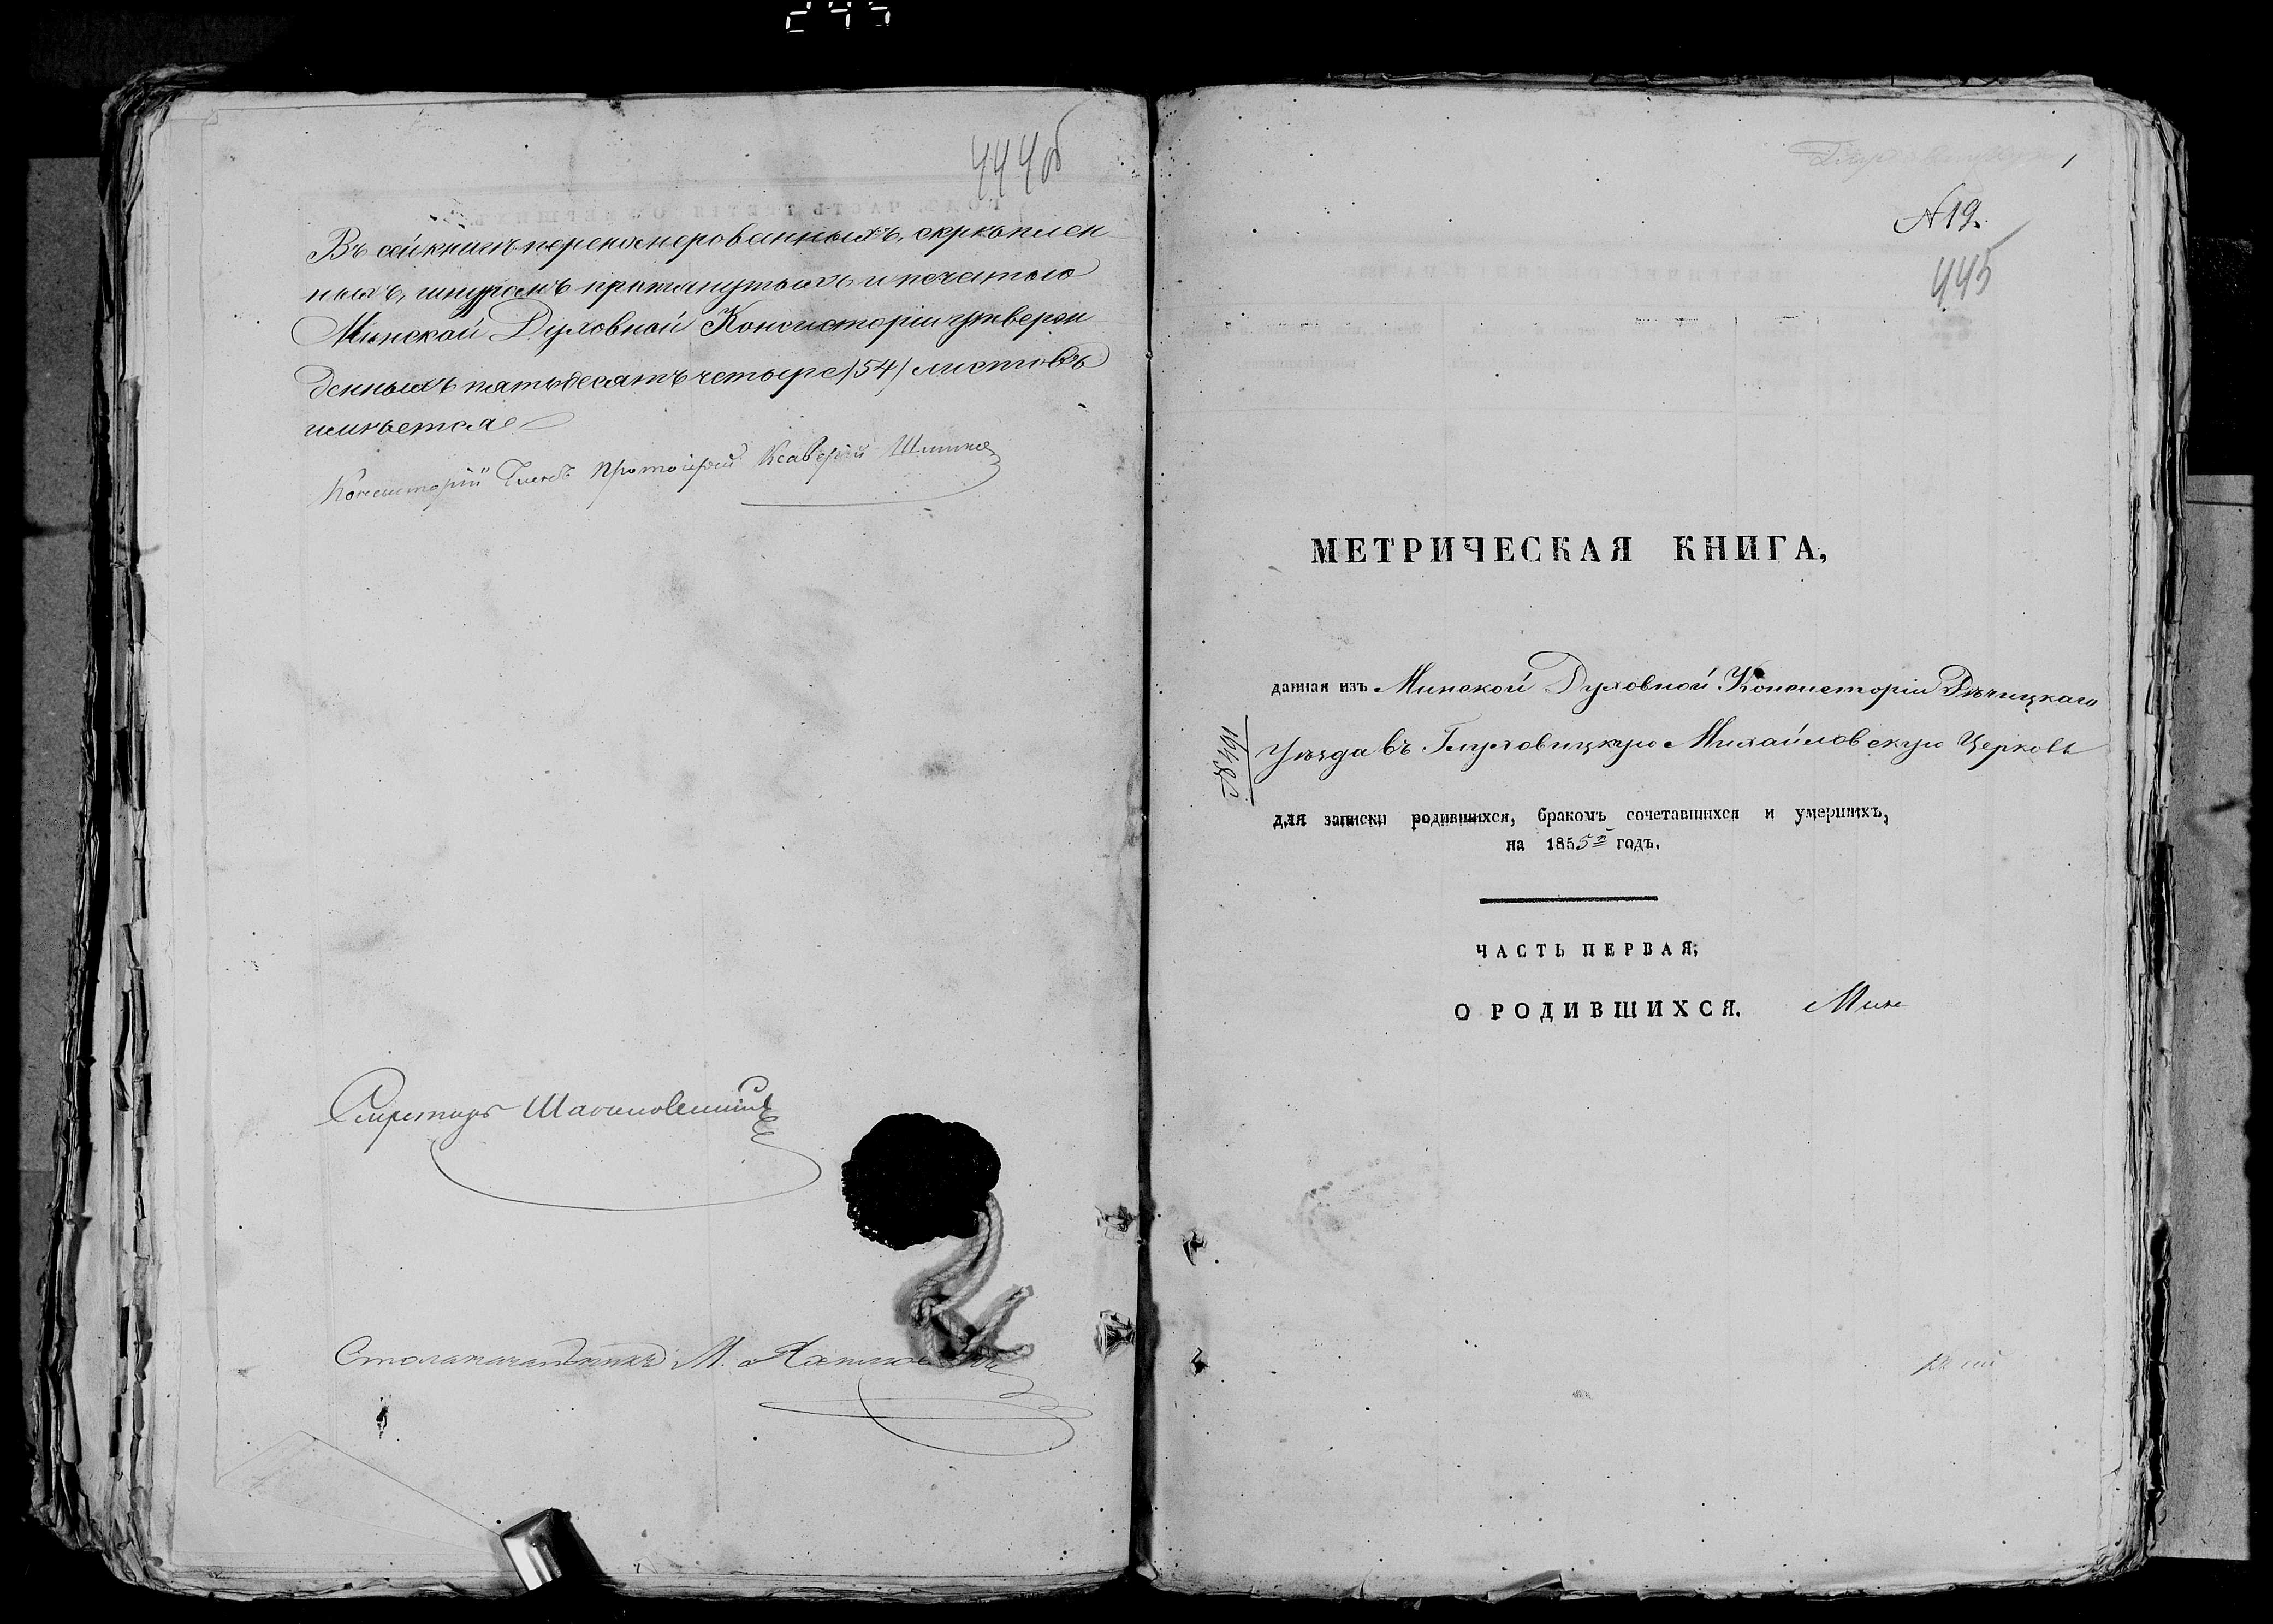 245
444об
Въ сей книгѣ перенумерованныхъ, скрѣплен
ныхъ, шнуромъ протянутыхъ и печатью
Минской Духовной Консисторіи утверж
денныхъ пятьдесятъ четыре /54/ листовъ
имѣется
Консисторіи Членъ Протоіерей Ксаверій
Секретарь
Столоначальникъ М.
N 19.
445
МЕТРИЧЕСКАЯ КНИГА,
данная изъ Минской Духовной Консисторіи Рѣчицкаго
Уѣзда въ Глуховицкую Михайловскую Церковь
N 491
для записки родившихся, бракомъ сочетавшихся и умершихъ,
на 1855й годъ.
ЧАСТЬ ПЕРВАЯ,
О РОДИВШИХСЯ. Мин